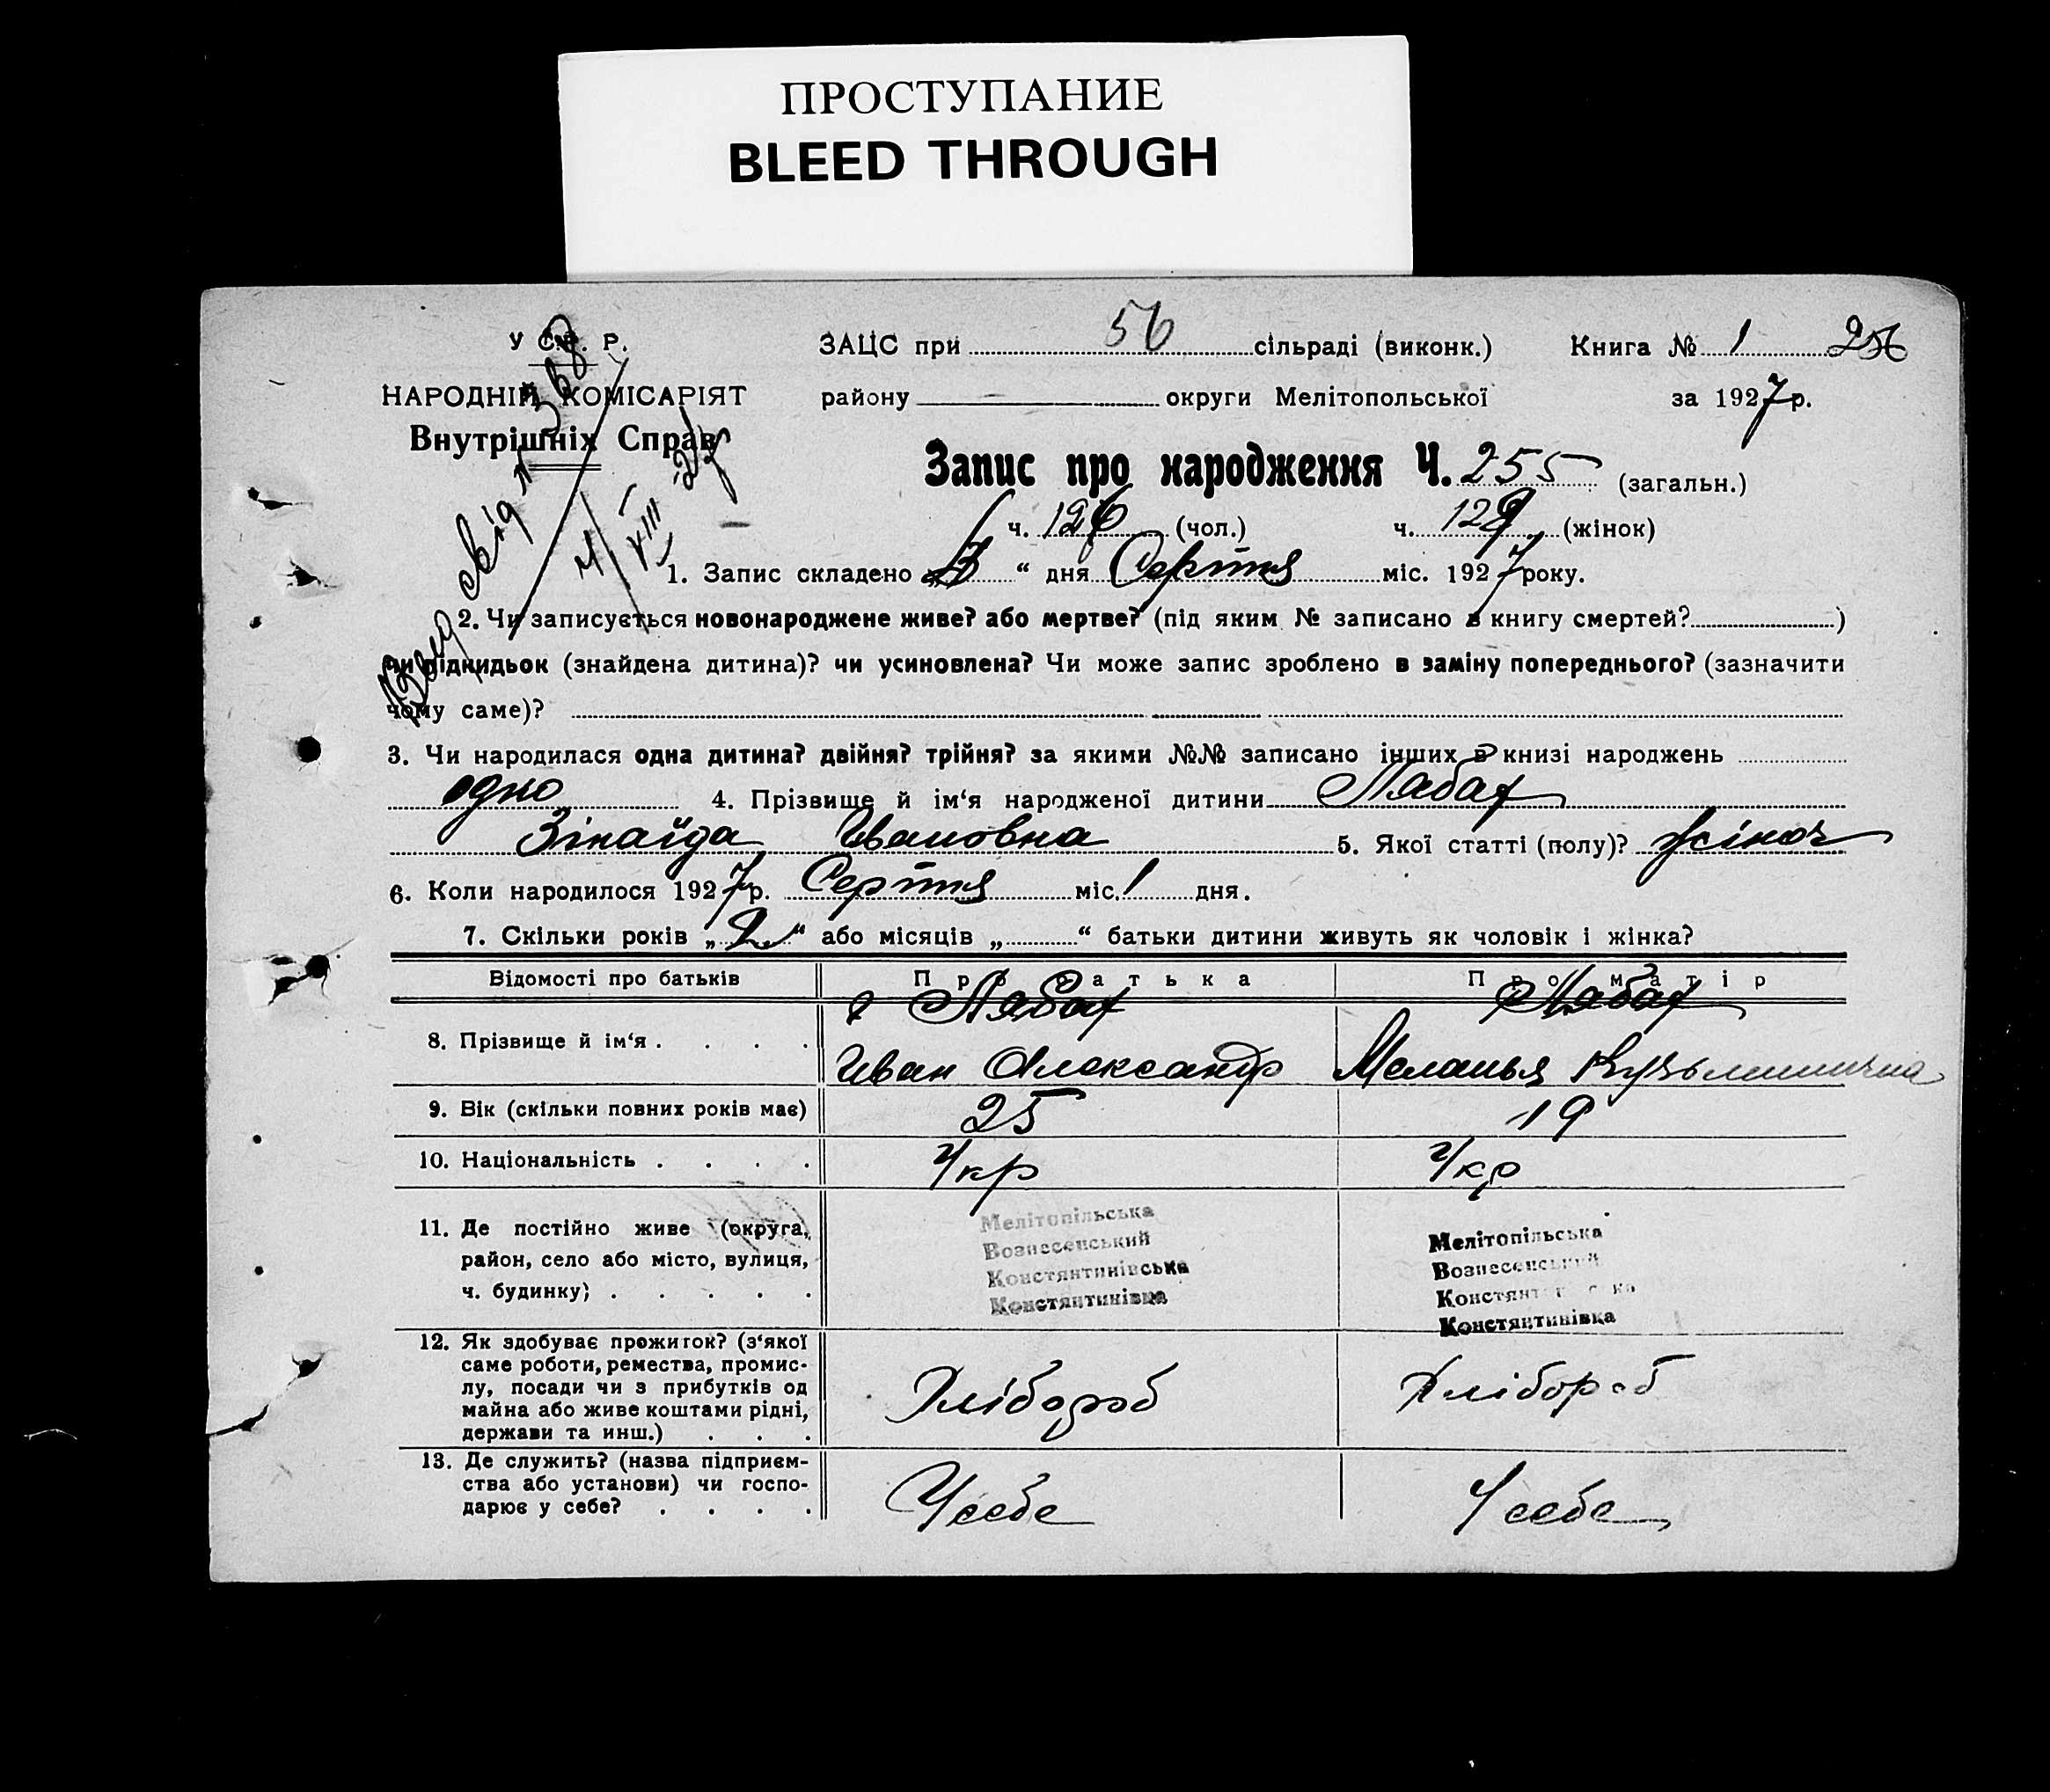 ПРОСТУПАНИЕ
BLEED THROUGH
У С.Р. Р.
НАРОДНІЙ КОМІСАРІЯТ
Внутрішніх Справ
ЗАЦС при 56 сільраді (виконк.) Книга № 1 256
району округи Мелітопольської за 1927 р.
Запис про народження Ч. 255 (загальн.)
ч. 126 (чол.) ч. 129 (жінок)
1. Запис складено „ “ дня Серпня міс. 1927 року.
2. Чи записується новонароджене живе? або мертве? (під яким № записано в книгу смертей? )
чи підкидьок (знайдена дитина)? чи усиновлена? Чи може запис зроблено в заміну попереднього? (зазначити
чому саме)?
3. Чи народилася одна дитина? двійня? трійня? за якими №№ записано інших в книзі народжень
одно 4. Прізвище й ім‘я народженої дитини Лябах
Зінаїда Івановна 5. Якої статті (полу)? жіноч
6. Коли народилося 1927 р. Серпня міс. 1 дня.
7. Скільки років „2“ або місяців „ “ батьки дитини живуть як чоловік і жінка?
Відомості про батьків Про батька Про матір
8. Прізвище й ім‘я . . . . Лябах Лябах
Иван Олександр Меланья Кузьминична
9. Вік (скільки повних років має) 25 19
10. Національність . . . . Укр Укр
11. Де постійно живе (округа, район, село або місто, вулиця, ч. будинку) . . . . .
Мелітопільська Мелітопільська
Вознесенський Вознесенський
Констянтинівська
Констянтинівка Констянтинівка
12. Як здобуває прожиток? (з‘якої
саме роботи, ремества, промис-
лу, посади чи з прибутків од
майна або живе коштами рідні,
держави та инш.) . . .
Хлібороб Хлібороб
13. Де служить? (назва підприєм-
ства або установи) чи госпо-
дарює у себе? . . . .
У себе У себе